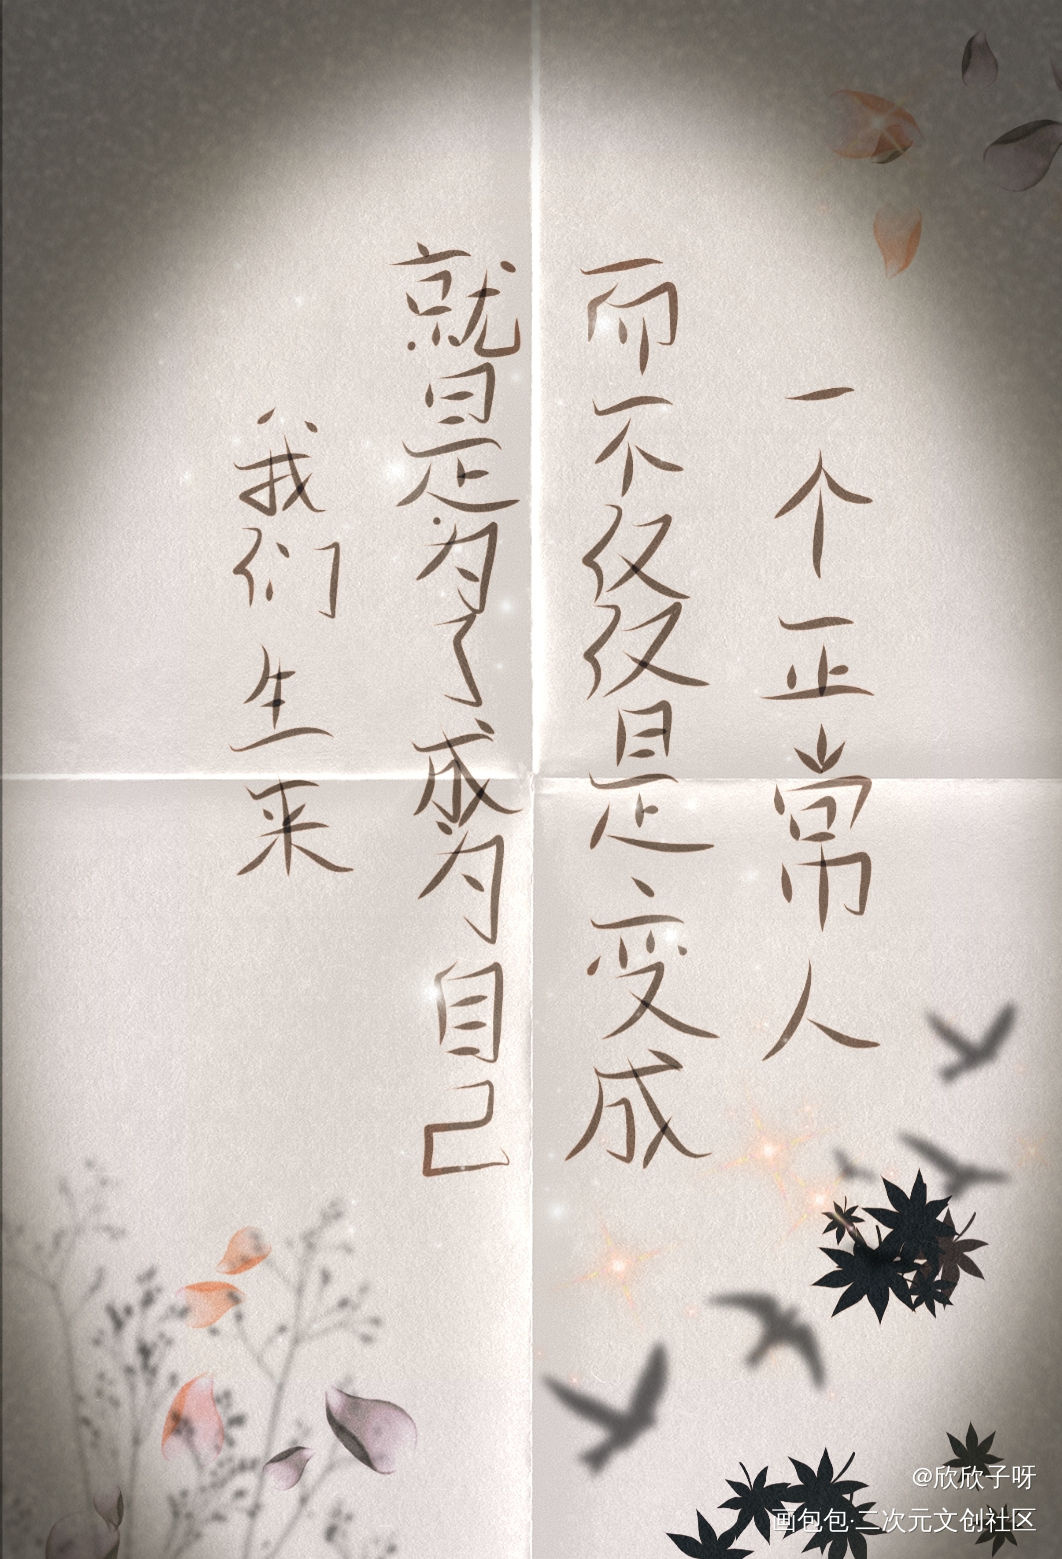 我们生来
就是为了成为自己
而不仅仅是变成
一个正常人
@欣欣子呀
画包包·二次元文创社区